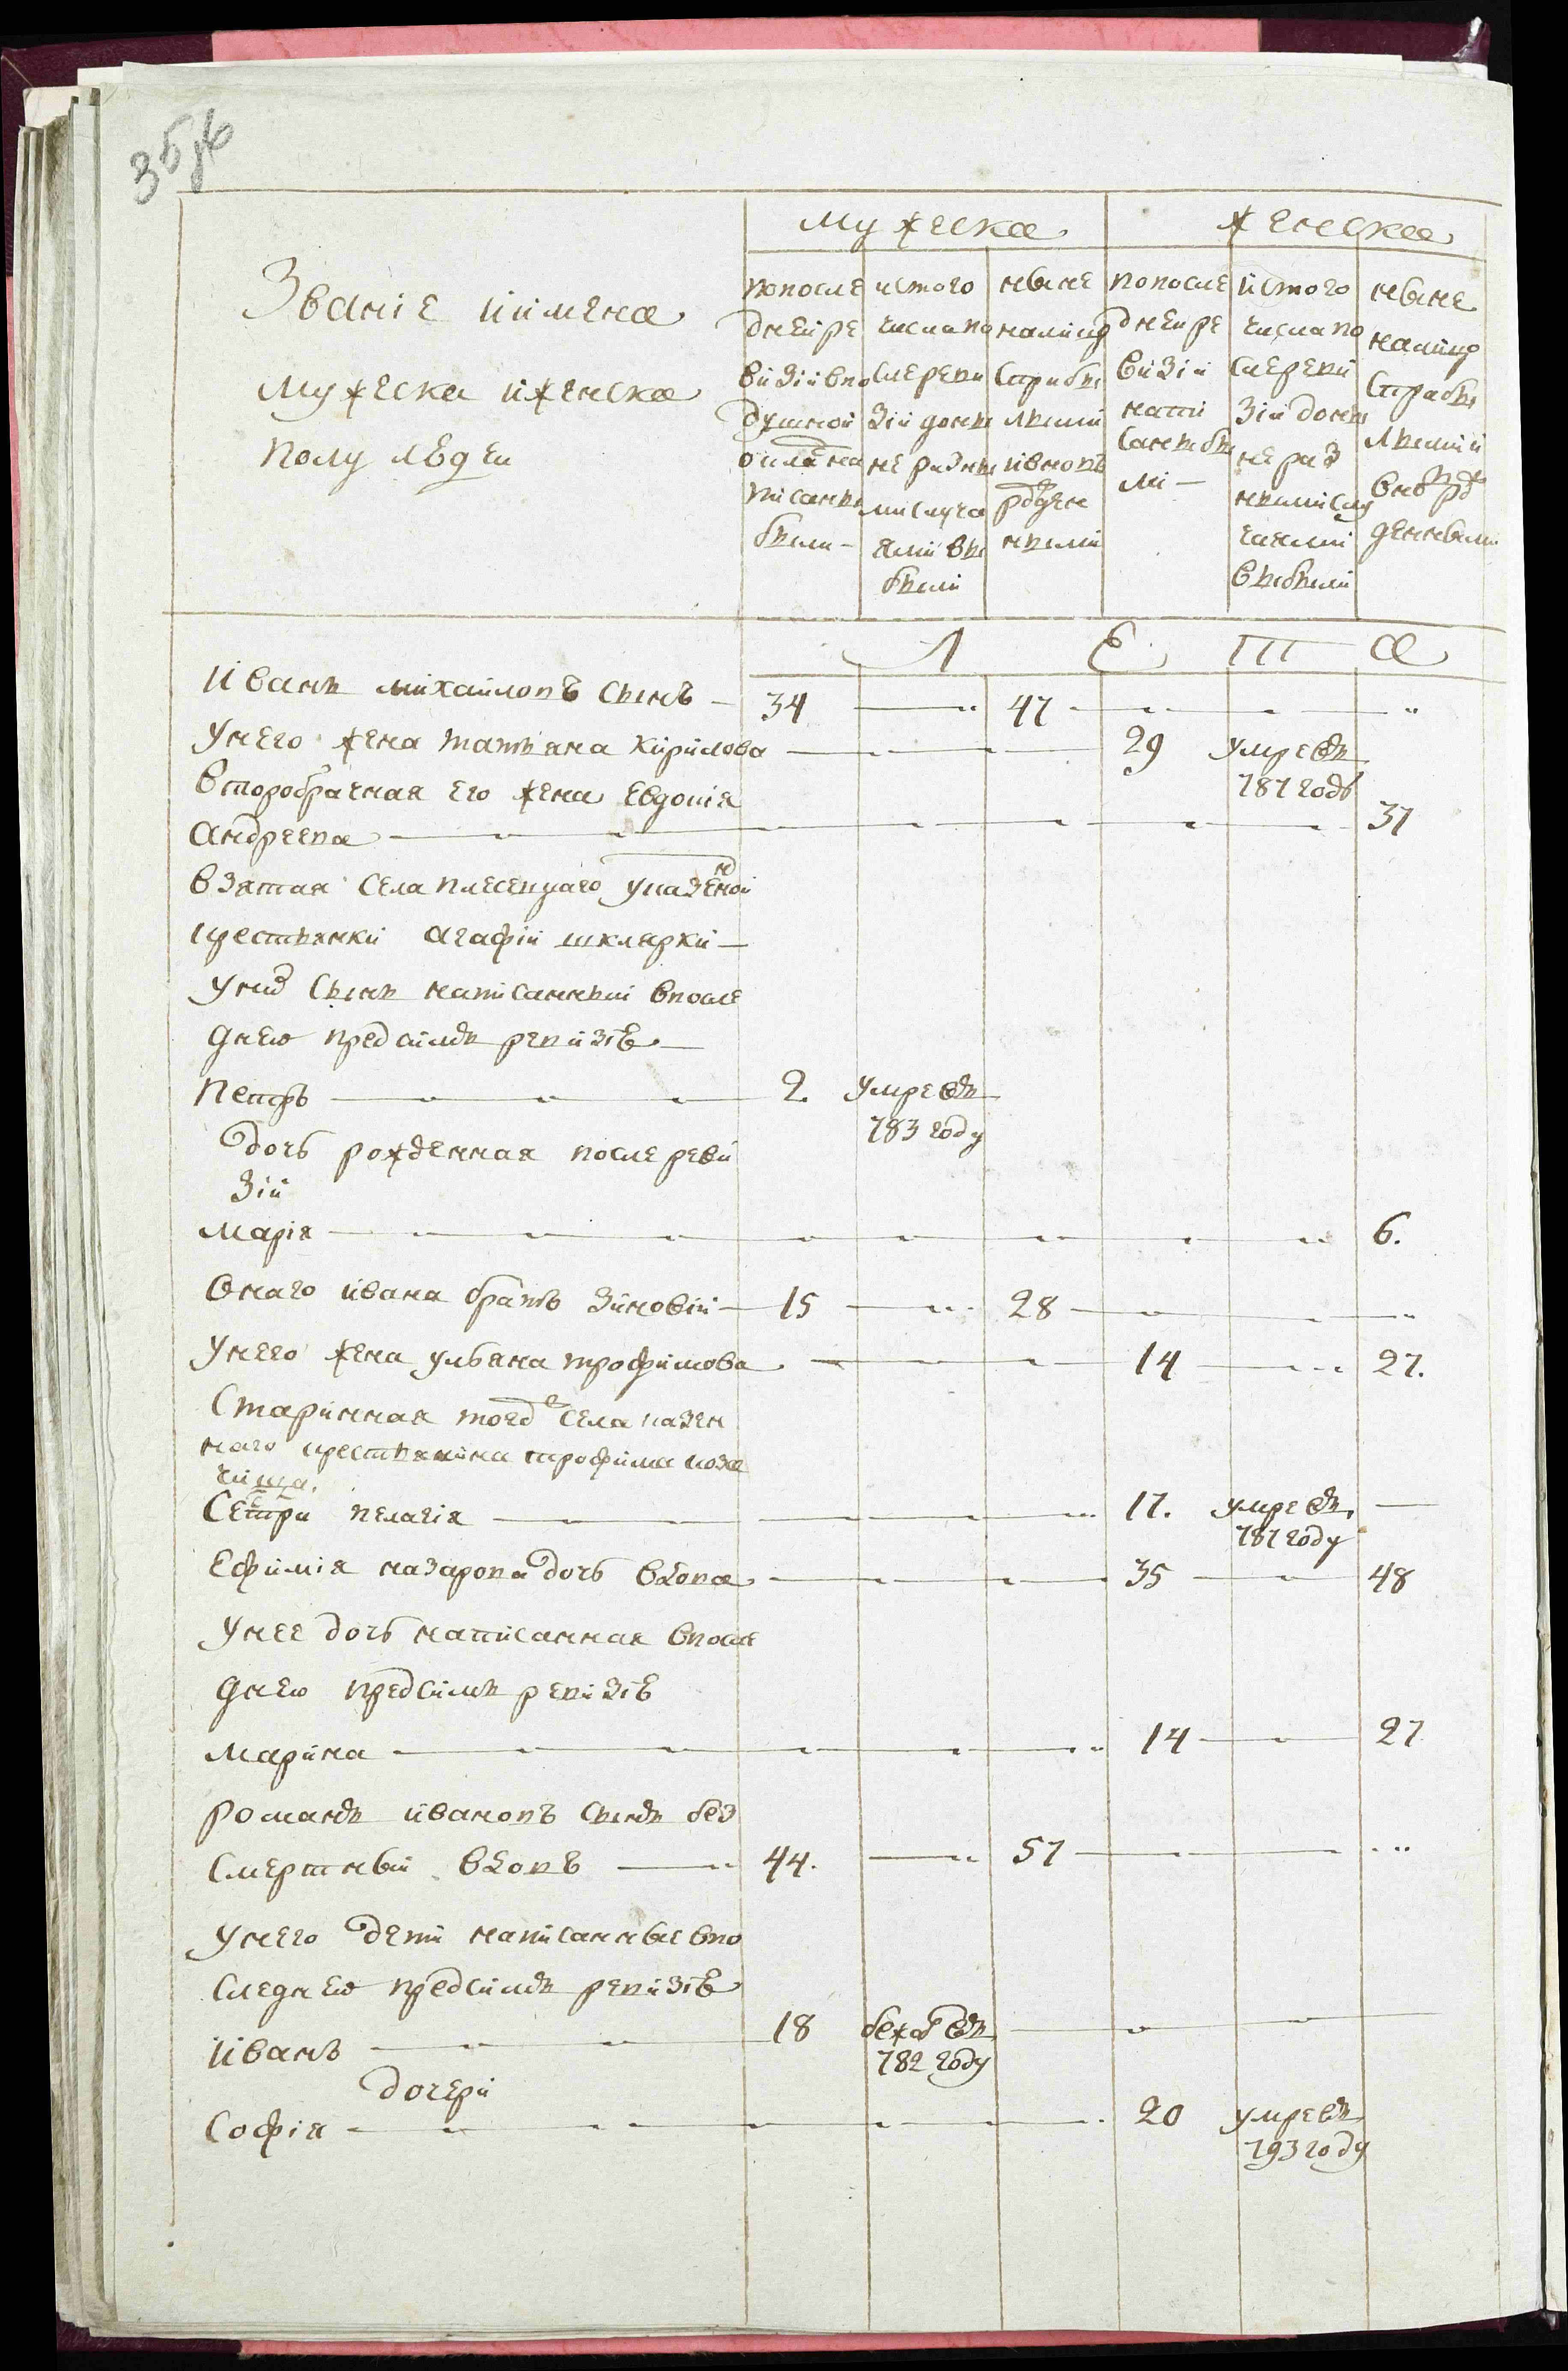 35об
Мужеска
Женска
Званiе и имена
мужеска и женска
полу людеи
попосле
дней ре
визiи впо
душной
окладна
писаны
были —
исного
числа по
сле реви
зiи доны
не разны
ми случа
ями вы
были
ныне
налицо
сприбы
лыми
и вновь
рожден
ными
попосле
дней ре
визiи
напи
саны бы
ли —
исного
числа по
сле реви
зiи доны
не раз
ными слу
чаями
выбыли
ныне
налицо
сприбы
лыми и
вновь рож
денными
Л е т а
Иванъ михайловъ сынъ — 34 — 47 —
У него жена татьяна кирилова — 29 умре въ 787 годъ
Второбрачная его жена Евдокiя
андреева — 37
взятая села плесецкаго указеной
крестьянки агафiи шклярки —
У них сынъ написанный впосле
днею предсимъ ревизiе —
Петръ — 2. умре въ 783 году
дочь рожденная после реви
зiи
марiя — 6.
Онаго ивана братъ зиновiй — 15 — 28 —
У него жена ульяна трофимова — 14 — 27.
Старинная тоеж села казен
наго крестьянина трофима коза
чища.
Сестра пелагiя — 17. умре въ 787 году —
Ефимiя назарова дочь вдова — 35 — 48
У нее дочь написанная впосле
днею предсимъ ревизiе
марина — 14 — 27
романъ ивановъ сынъ без
смертный вдовъ — 44. — 57 —
У него дети написанные впо
следнею предсимъ ревизiе
Иванъ — 18 бежал въ 782 году —
дочери
Софiя — 20 умре въ 793 году